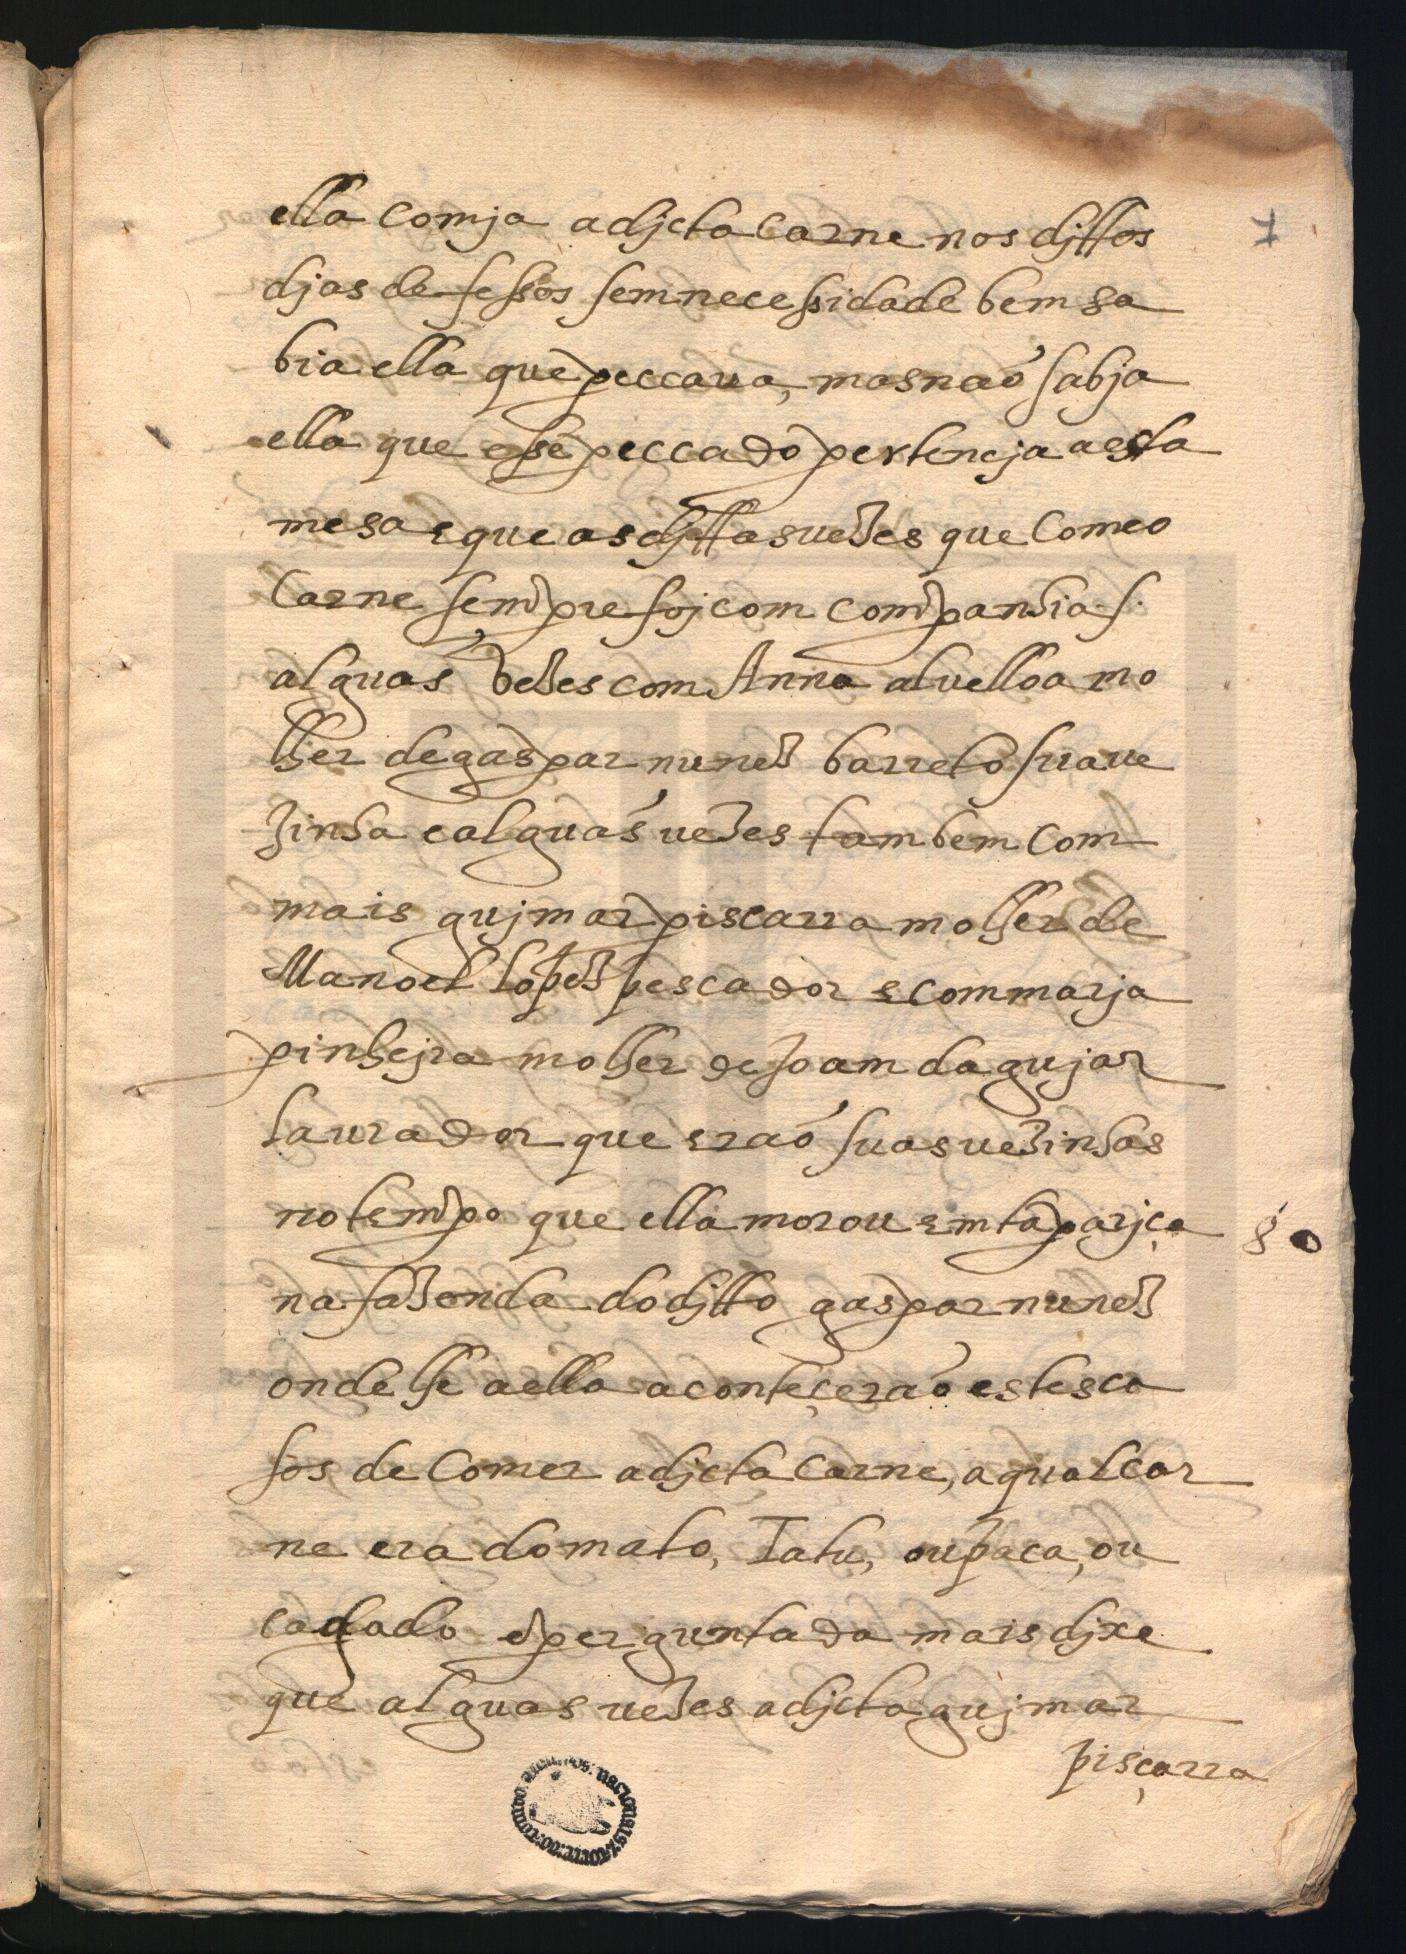 ella comja a djcta carne nos djttos
djas defessos sem necessidade bem sa
bia ella que peccaua, mas naõ sabja
ella que esse peccado pertencja a esta
mesa e que as djttas uezes que comeo
carne sempre foj com companhia s.
alguas vezes com Anna aluelloa mo
lher de gaspar nunez barreto sua ue
zinha e alguas uezes tambem com
mais gujmar piscarra molher de
Manoel lopez pescador e com marja
pinhejra molher de Joam dagujar
laurador que eraõ suas uezinhas
no tempo que ella morou em taparjca
na fazenda do djtto gaspar nunez
onde lhe a ella aconteçeraõ estes ca
sos de comer a djcta carne, a qual car
ne era do mato, Tatu, ou paca, ou
ueado e perguntada mais djxe
que alguas uezes a djcta gujmar
pisçarra
7